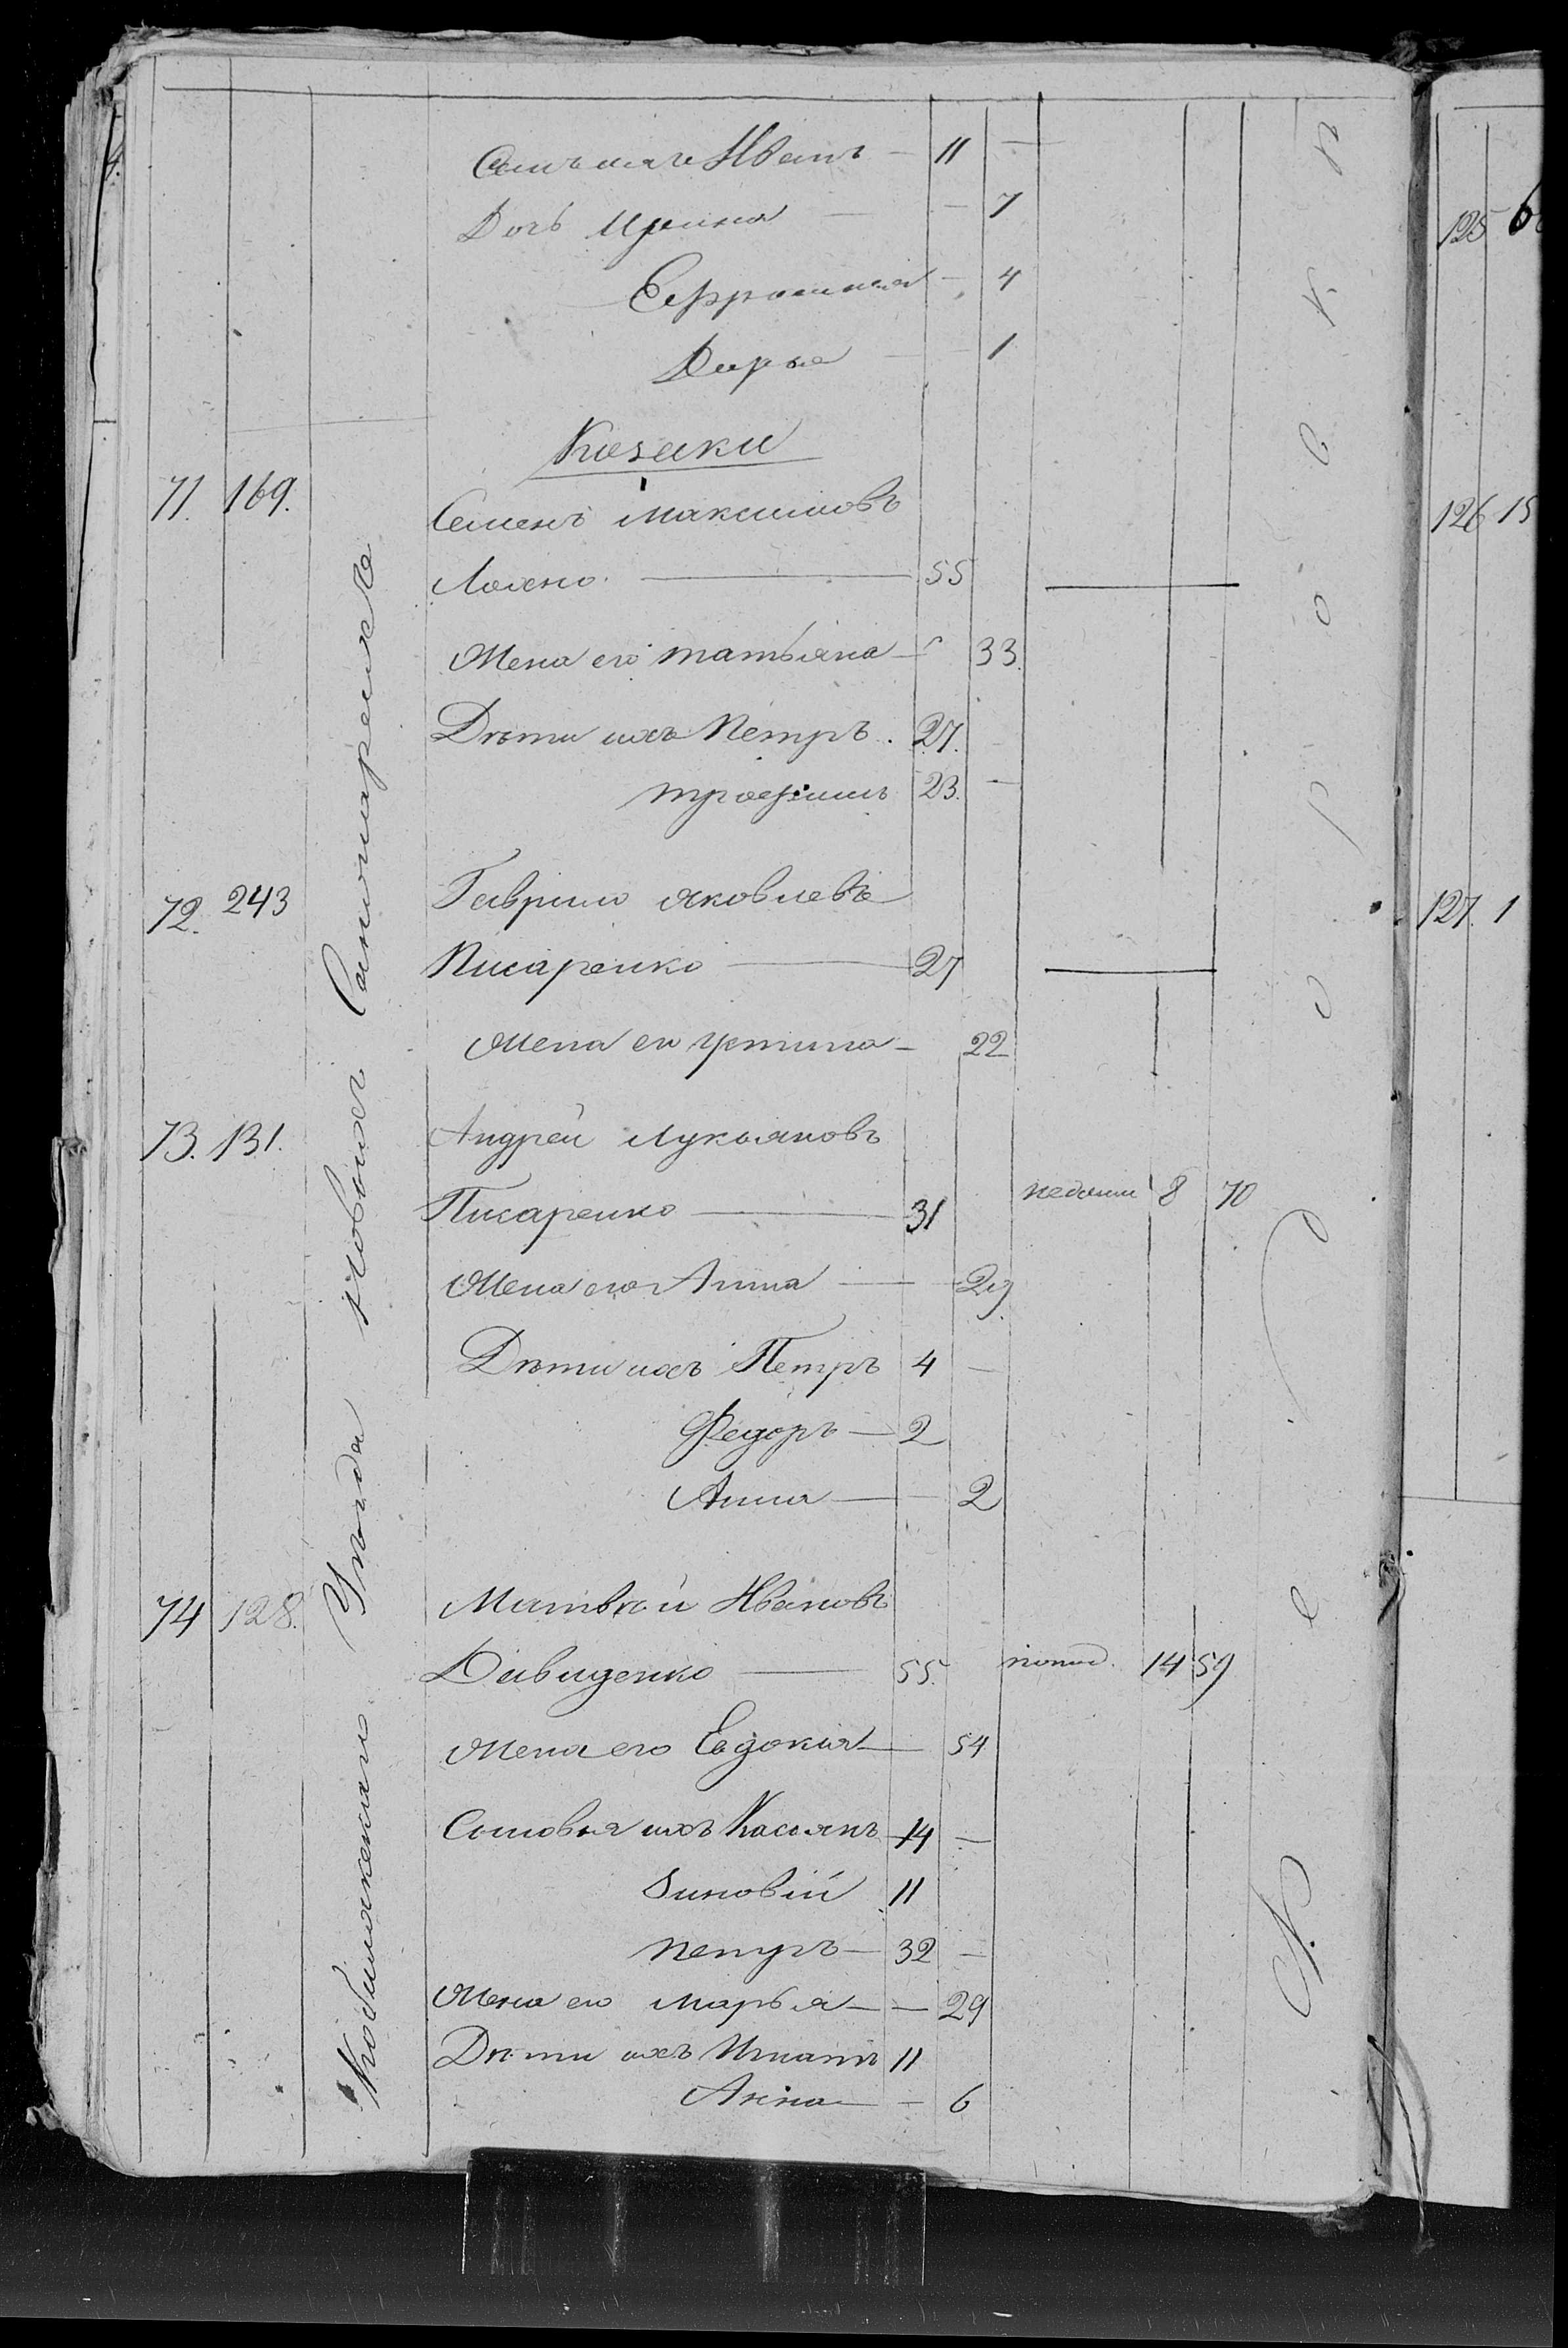 Сынъ ихъ Иванъ — 11 —
Дочь Ирина — — 7
Евфросинья — 4
Дарья — — 1
Козаки
71. 169. Семенъ Максимовъ
55
Жена его Татьяна — 33.
Дѣти ихъ Петръ. 27. —
Трофимъ 23. —
72. 243 Гаврило Яковлевъ
Писаренко — 27
Жена его Устина — 22
73. 131. Андрей Лукьяновъ
Писаренко — 31 8 70
Жена его Анна — — 29.
Дѣти ихъ Петръ 4 —
Федоръ — 2
Анна — — 2
74 128. Матвѣй Ивановъ
Давиденко — 55. 14 59
Жена его Евдокия — 54
Сыновья ихъ Касьянъ 14 —
Зиновій 11
Петръ — 32 —
Жена его Марья — — 29
Дѣти ихъ Игнатъ 11
Анна — — 6
Кобылякскаго Уѣзда Новыхъ
125 6
126 15
127. 1